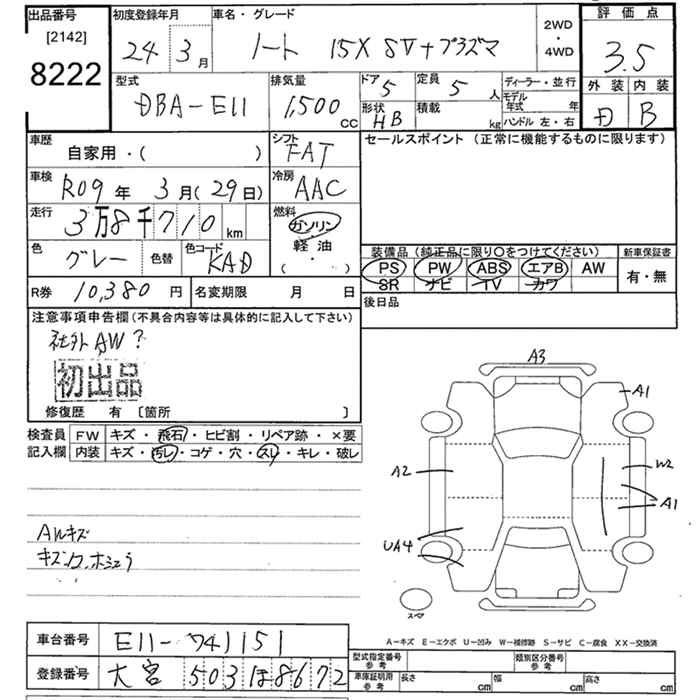 出品番号
[2142]
8222
初度登録年月
24 3 月
車名・グレード
ノート 15X SV+プラズマ
2WD
・
4WD
評価点
3.5
外装 内装
D B
型式
DBA-E11
排気量
1,500 cc
ドア 5
定員 5 人
形状 HB
積載 kg
ディーラー・並行
モデル年式 年
ハンドル 左・右
車歴
自家用・( )
シフト FAT
セールスポイント（正常に機能するものに限ります）
車検 R09 年 3 月(29日)
冷房 AAC
走行 3万8千710 km
燃料
ガソリン
軽油
( ・ )
色 グレー
色替
色コード KAD
装備品（純正品に限り○をつけてください）
PS PW ABS エアB AW
SR ナビ TV カワ
新車保証書
有・無
R券 10,380 円
名変期限 月 日
後日品
注意事項申告欄(不具合内容等は具体的に記入して下さい)
社外AW?
初出品
修復歴 有 [箇所 ]
検査員
記入欄
FW キズ・飛石・ヒビ割・リペア跡・×要
内装 キズ・汚レ・コゲ・穴・スレ・キレ・破レ
A3
A1
A2
W2
A1
UA4
スペア
AWキズ
A-キズ E-エクボ U-凹み W-補修跡 S-サビ C-腐食 XX-交換済
車台番号 E11-741151
登録番号 大宮 503 ほ 8672
型式指定番号 参考
類別区分番号 参考
車庫証明用 参考
長さ cm
幅 cm
高さ cm